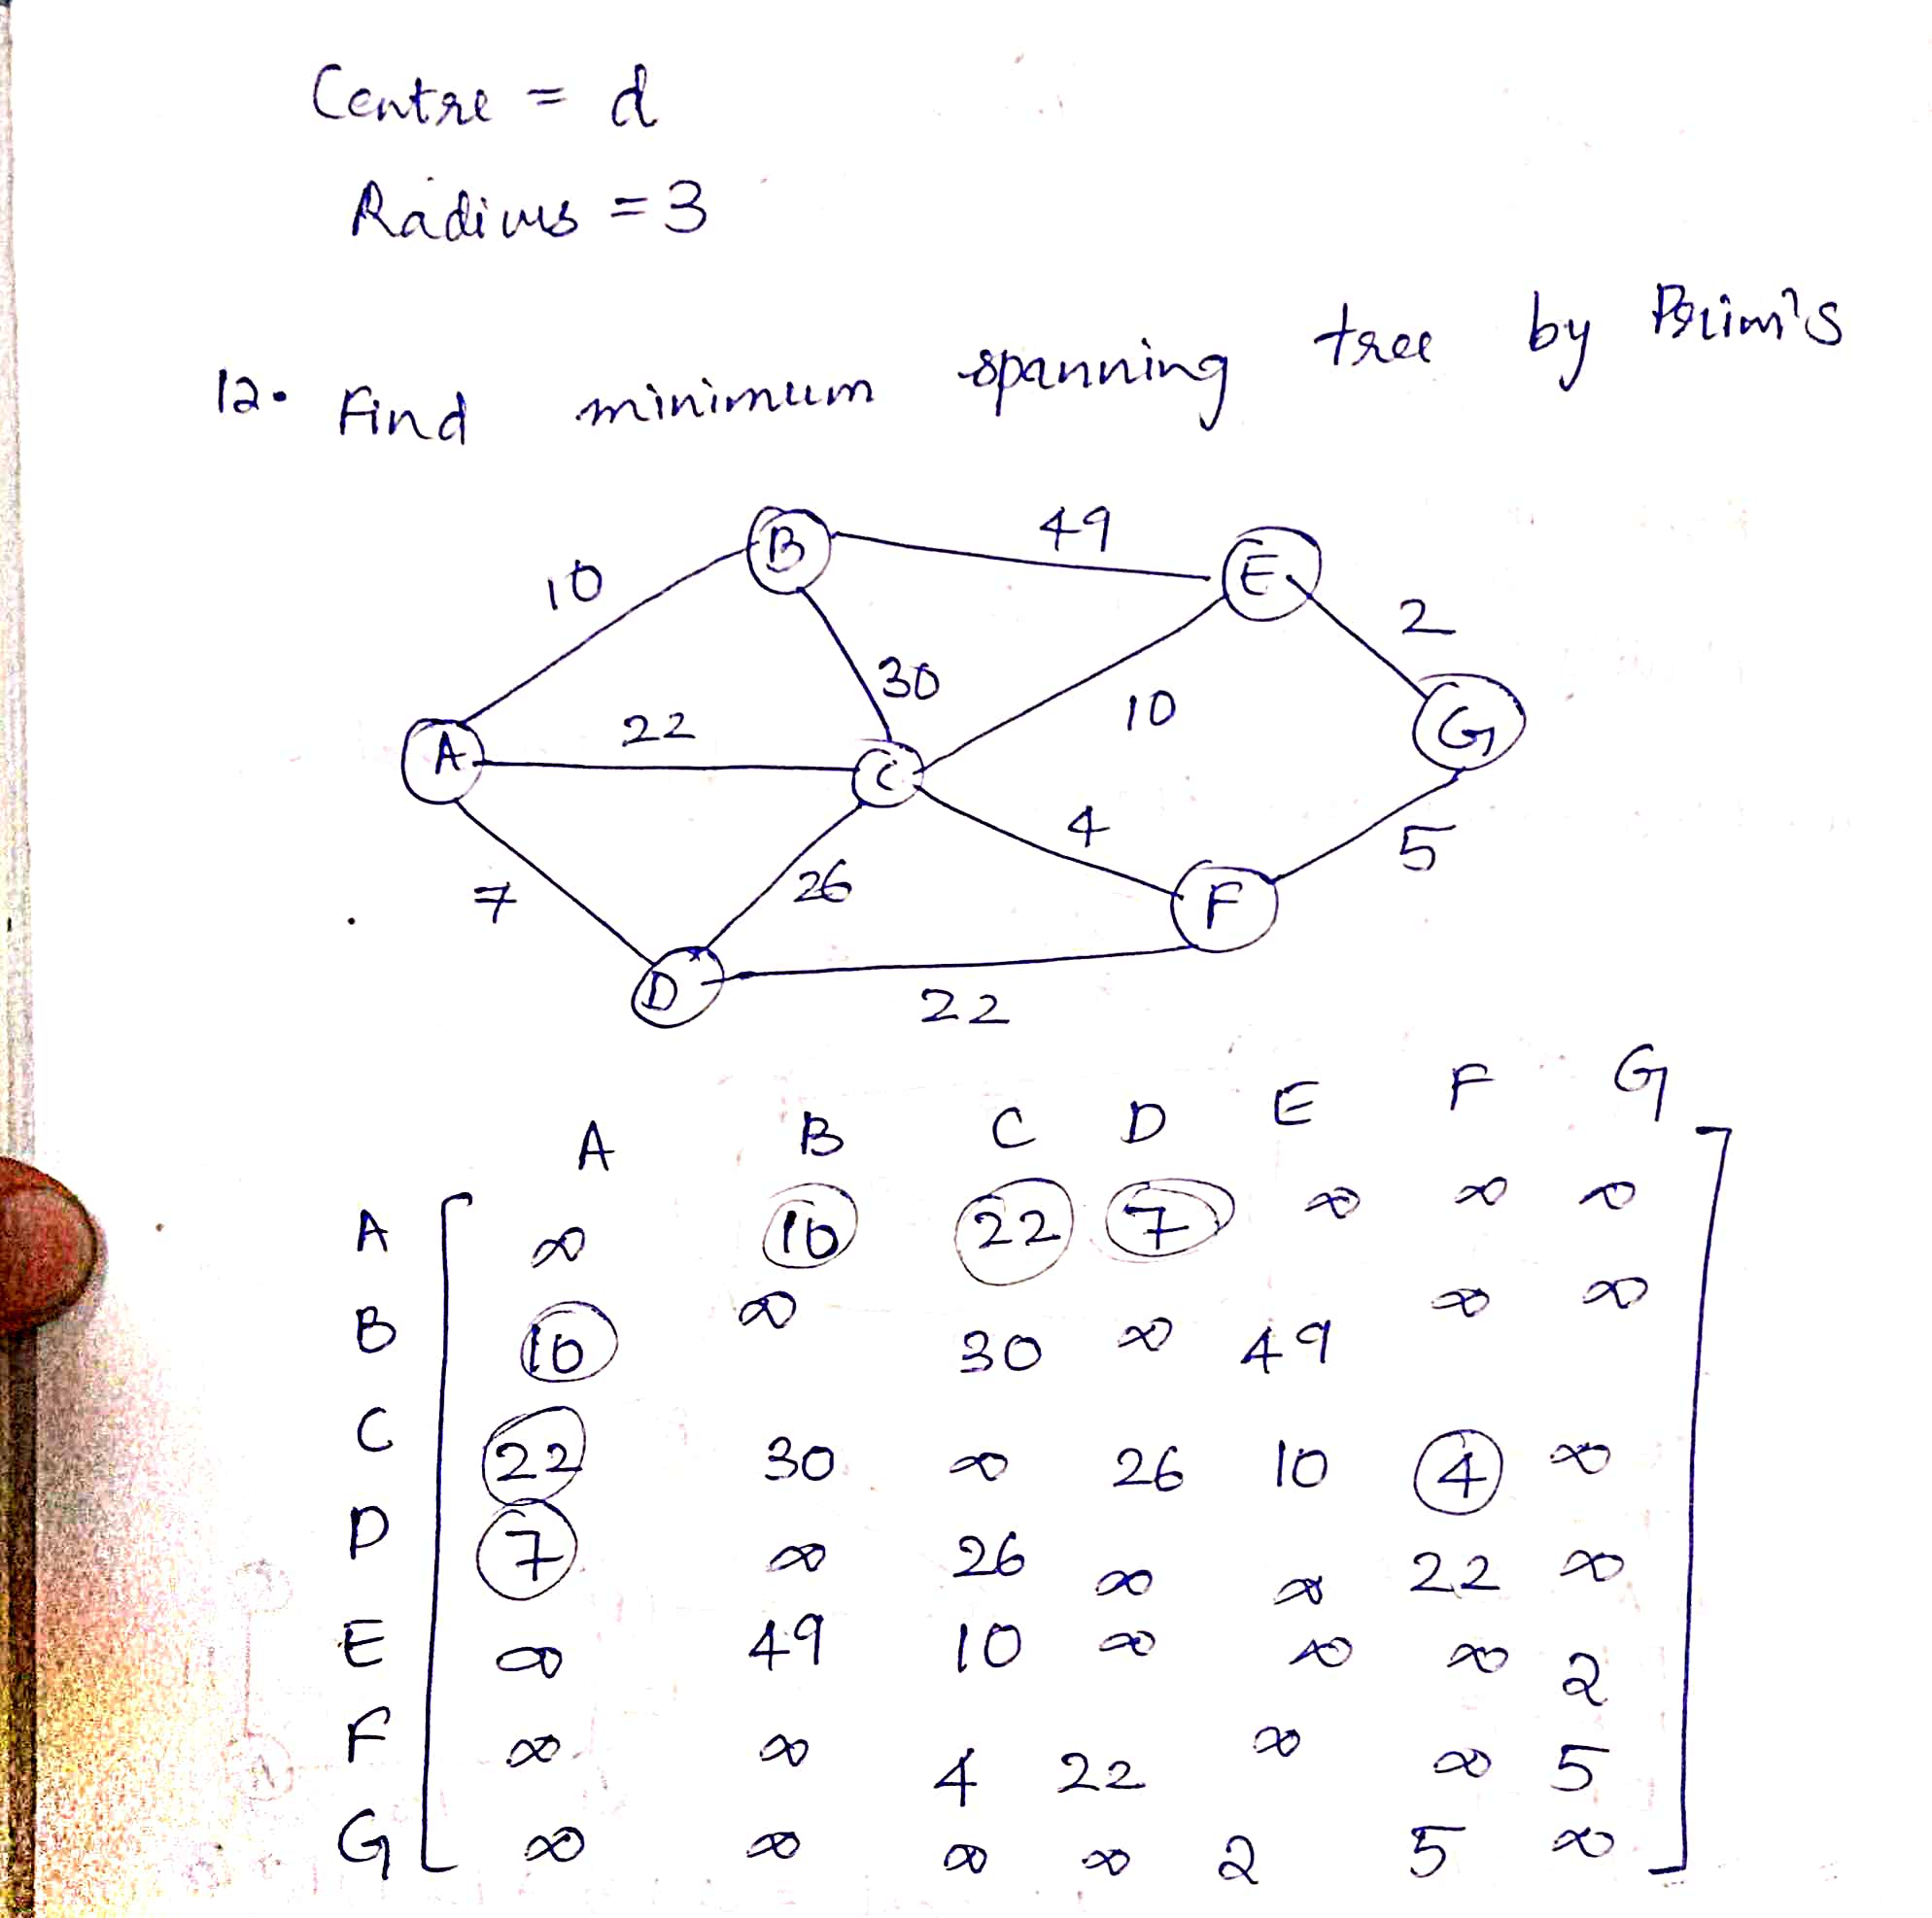 Centre = d
Radius = 3
12. Find minimum spanning tree by Prim's
B 49 E
10 2
30
22 10 G
A C
4
7 26 5
F
D
22
A B C D E F G
A ∞ 10 22 7 ∞ ∞ ∞
B 10 ∞ 30 ∞ 49 ∞ ∞
C 22 30 ∞ 26 10 4 ∞
D 7 ∞ 26 ∞ ∞ 22 ∞
E ∞ 49 10 ∞ ∞ ∞ 2
F ∞ ∞ 4 22 ∞ ∞ 5
G ∞ ∞ ∞ ∞ 2 5 ∞